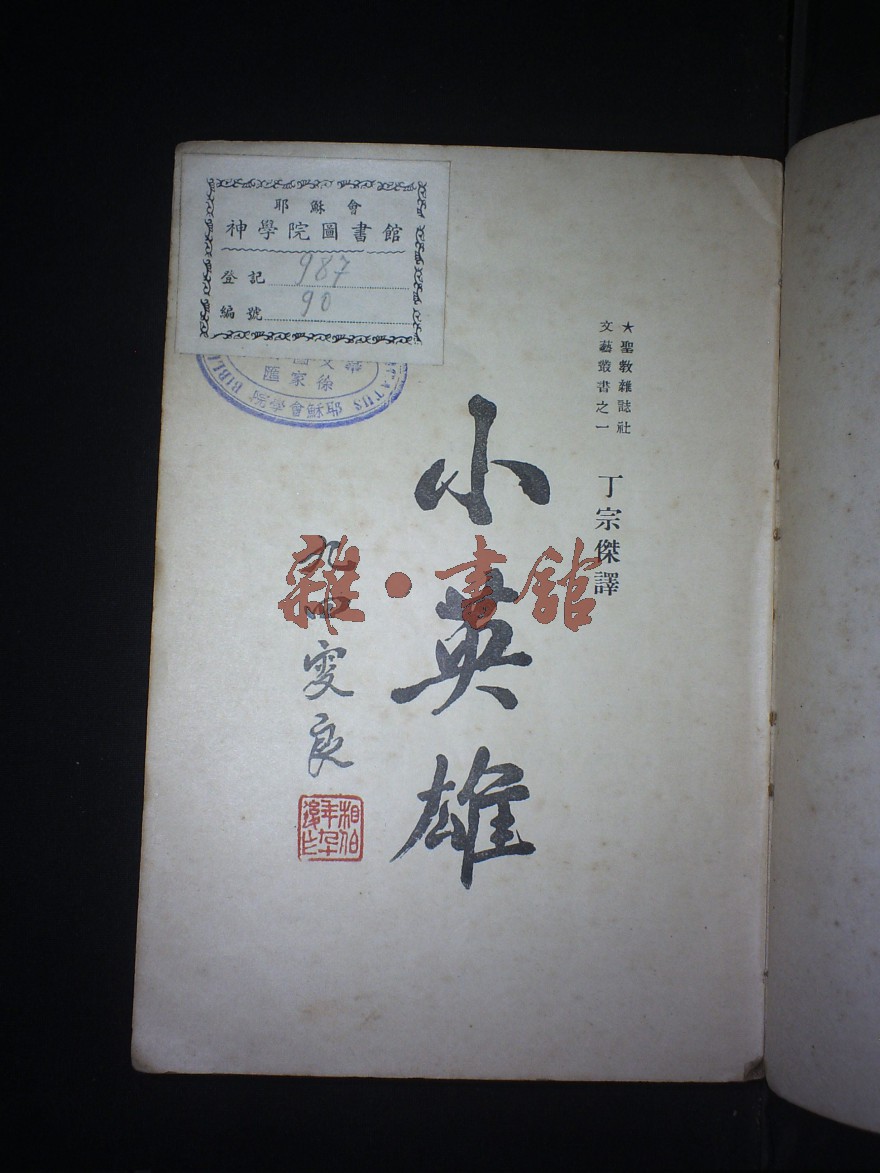 耶穌會
神學院圖書館
登記 987
編號 90
匯家徐
★聖教雜誌社
文藝叢書之一
丁宗傑譯
小英雄
九四叟良
相伯
年九十
後作
雜·書館